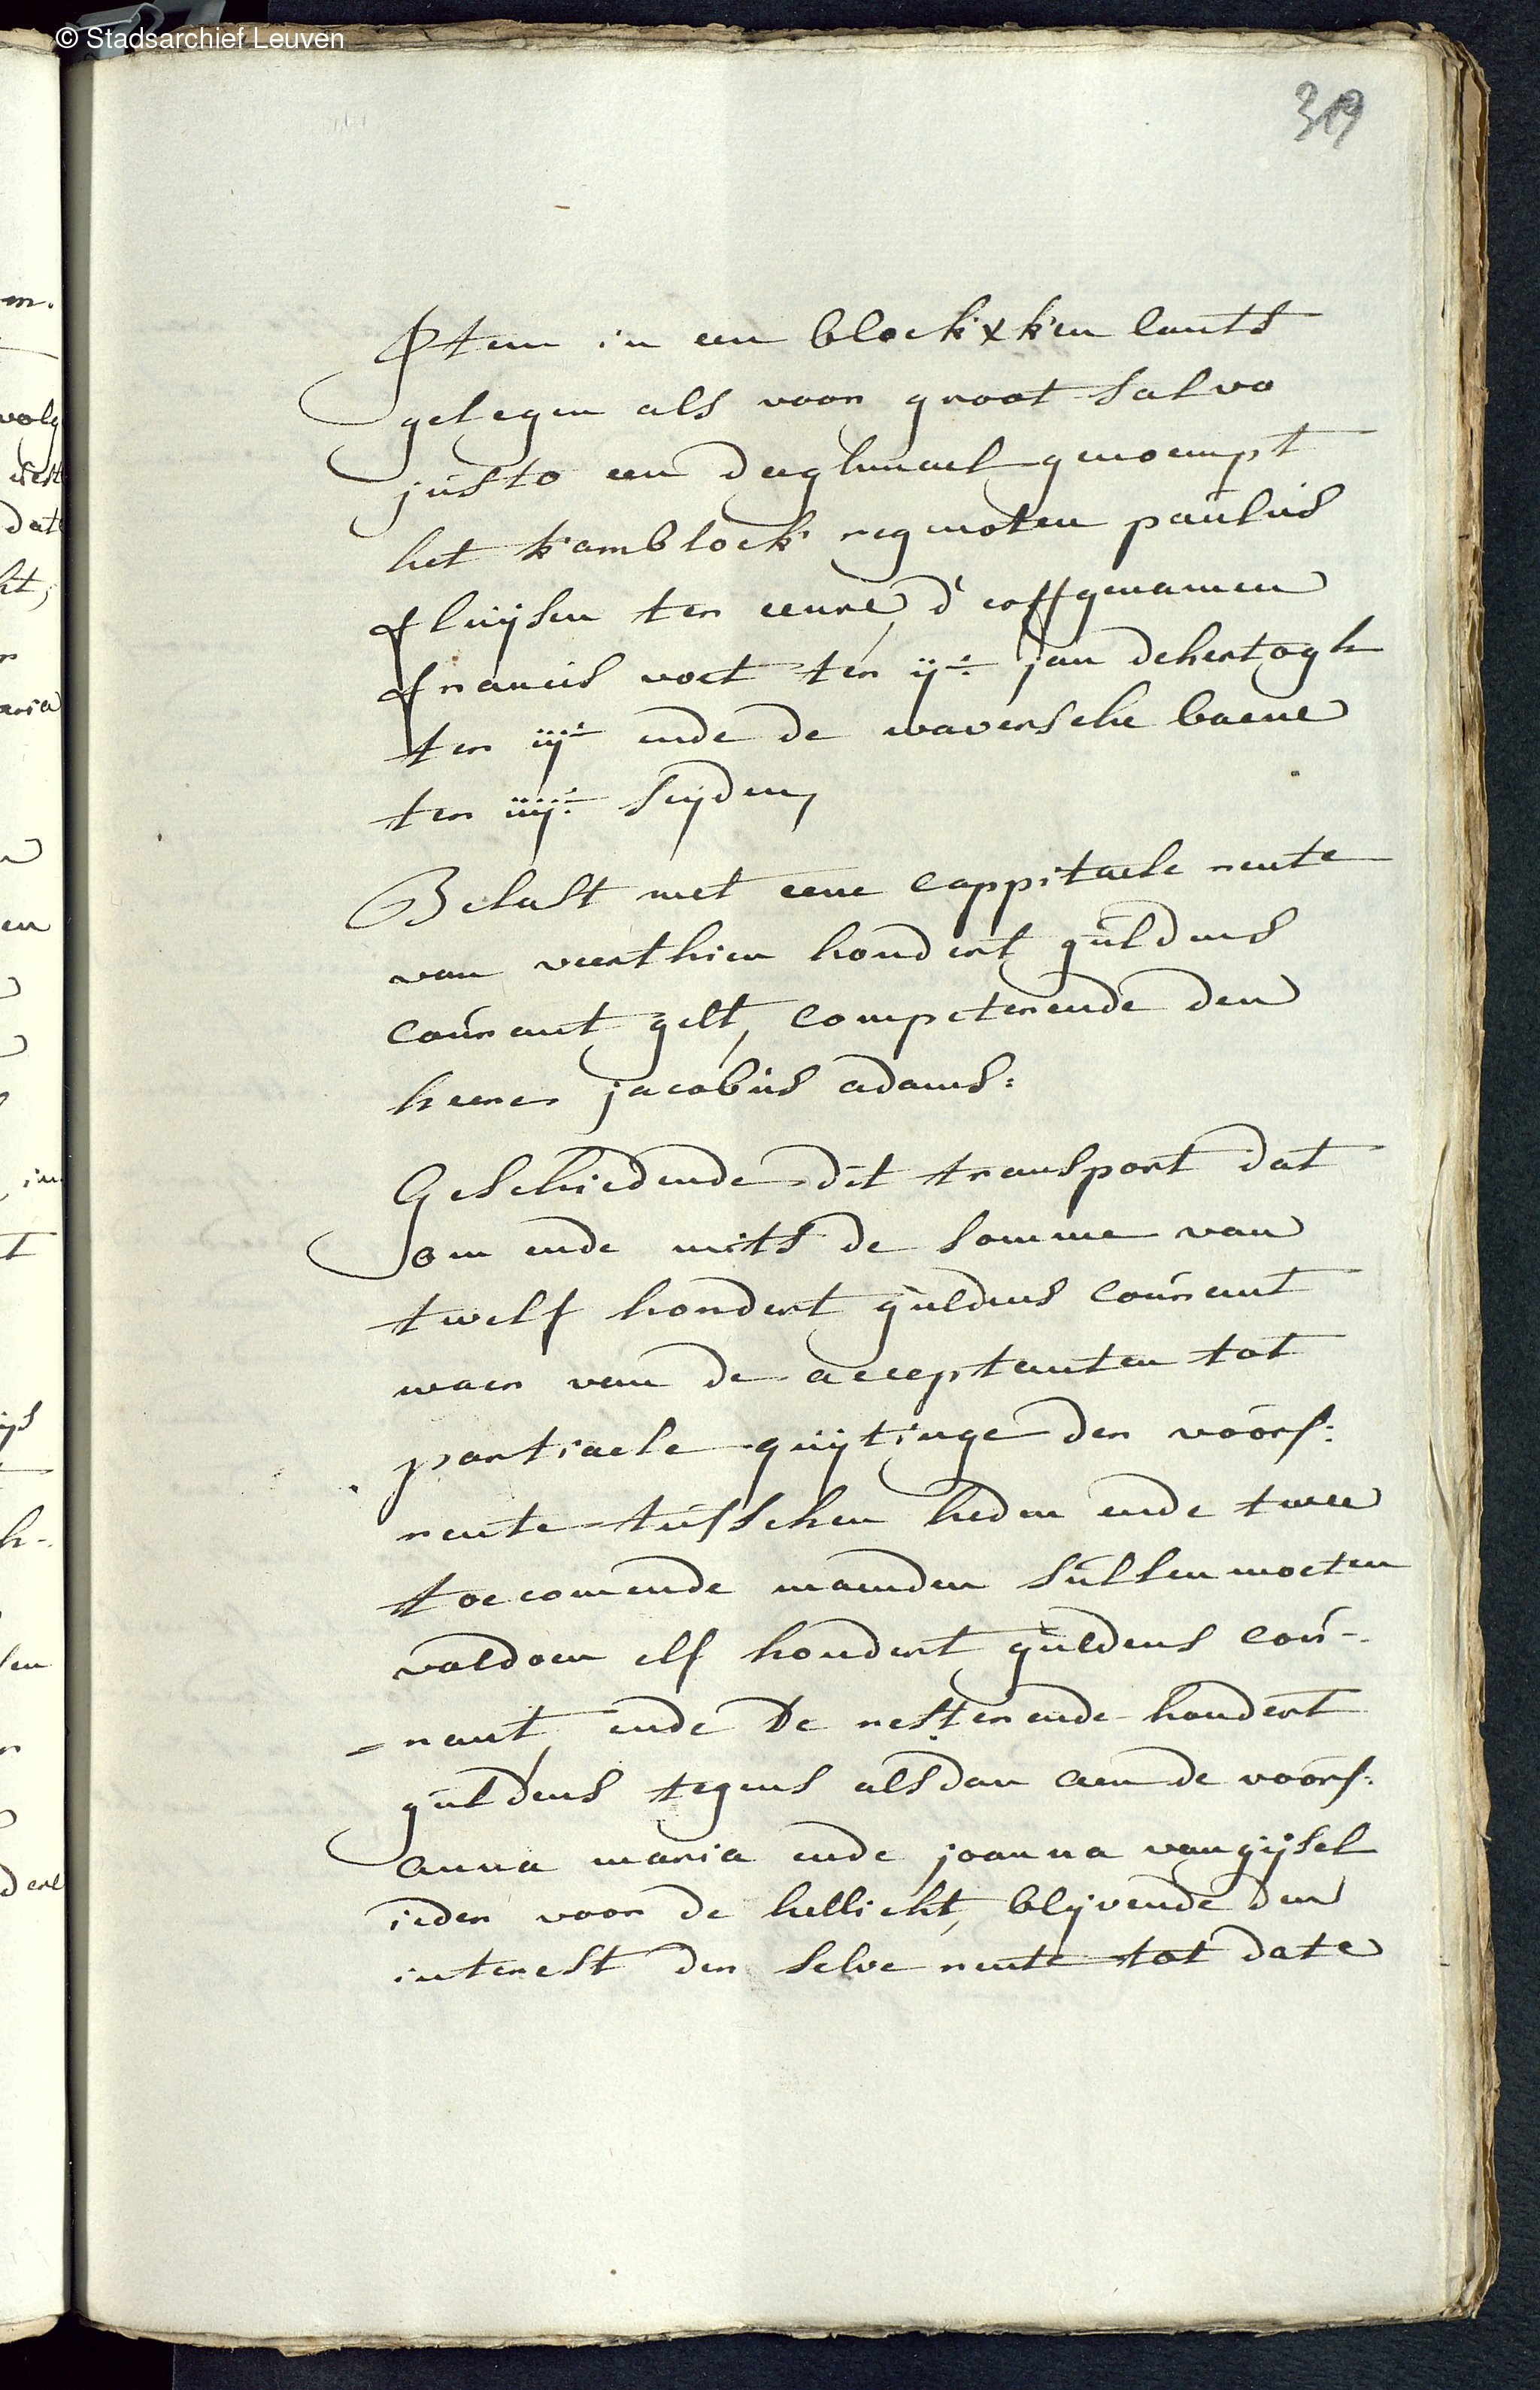 © Stadsarchief Leuven
319
Item in een blockxken lants
gelegen als voor groot salvo
justo een daghmael genoempt
het kamblock regenoten paulus
fluijsen ter eenre, d'erffgenamen
francis voet ter ij:e jan dehertogh
ter iij:e ende de waversche baene
ter iiij:e seijden,
Belast met eene cappitaele rente
van veerthien hondert guldens
courant gelt, competerende den
heere jacobus adams:
Geschiedende dit transport dat
om ende mits de somme van
twelf hondert guldens courant
waer van de acceptanten tot
partiaele quijtinge der voors:
rente tusschen heden ende twee
toecomende maenden sullen moeten
voldoen elf hondert guldens cou-
-rant, ende de resterende hondert
guldens tegens alsdan aen de voors:
anna maria ende joanna vangijsel
ieder voor de hellicht, blijvende den
interest der selve rente tot date